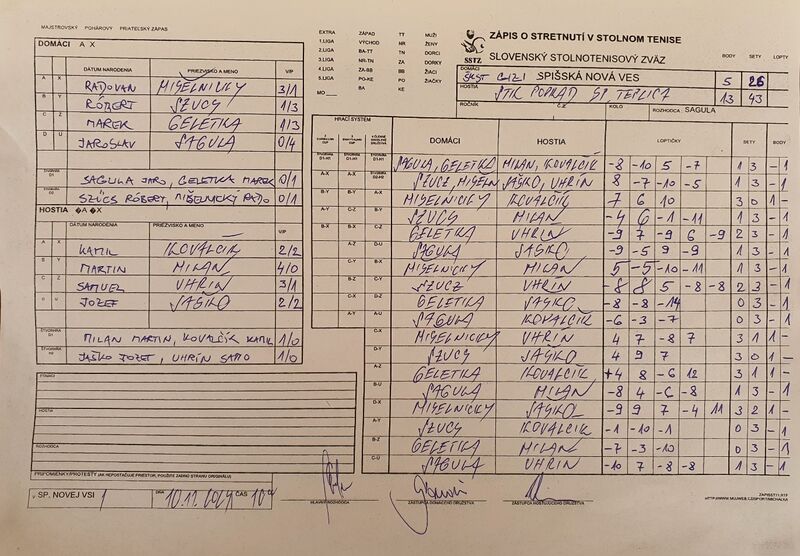 MAJSTROVSKÝ POHÁROVÝ PRIATEĽSKÝ ZÁPAS
DOMÁCI A X
DÁTUM NARODENIA PRIEZVISKO A MENO V/P
A X RADOVAN MIŠELNICKÝ 3/1
B Y RÓBERT SZUCS 1/3
C Z MAREK GELETKA 1/3
D U JAROSLAV SAGULA 0/4
ŠTVORHRA D1 SAGULA JARO, GELETKA MAREK 0/1
ŠTVORHRA D2 SZÜCS RÓBERT, MIŠELNICKÝ RAĎO 0/1
HOSTIA �A �X
DÁTUM NARODENIA PRIEZVISKO A MENO V/P
A X KAMIL KOVALČÍK 2/2
B Y MARTIN MILAN 4/0
C Z SAMUEL UHRÍN 3/1
D U JOZEF JAŠKO 2/2
ŠTVORHRA D1 MILAN MARTIN, KOVALČÍK KAMIL 1/0
ŠTVORHRA D2 JAŠKO JOZEF, UHRÍN SAMO 1/0
DOMÁCI
HOSTIA
ROZHODCA
PRIPOMIENKY/PROTESTY (AK NEPOSTAČUJE PRIESTOR, POUŽITE ZADNÚ STRANU ORIGINÁLU)
V SP. NOVEJ VSI DŇA 10.11.2024 ČAS 10
HLAVNÝ ROZHODCA ZÁSTUPCA DOMÁCEHO DRUŽSTVA ZÁSTUPCA HOSŤUJÚCEHO DRUŽSTVA
EXTRA ZÁPAD TT MUŽI
1.LIGA VÝCHOD NR ŽENY
2.LIGA BA-TT TN DORCI
3.LIGA NR-TN ZA DORKY
4.LIGA ZA-BB BB ŽIACI
5.LIGA PO-KE PO ŽIAČKY
MO BA KE
ZÁPIS O STRETNUTÍ V STOLNOM TENISE
SSTZ SLOVENSKÝ STOLNOTENISOVÝ ZVÄZ
BODY SETY LOPTY
DOMÁCI SPIŠSKÁ NOVÁ VES 5 26
HOSTIA STK POPRAD SP. TEPLICA 13 43
ROČNÍK Č.Z. KOLO ROZHODCA SAGULA
HRACÍ SYSTÉM
DOMÁCI HOSTIA LOPTIČKY SETY BODY
SAGULA, GELETKA MILAN, KOVALČÍK -8 -10 5 -7 1 3 - 1
SZUCZ, MIŠELN JAŠKO, UHRÍN 8 -7 -10 -5 1 3 - 1
MIŠELNICKY KOVALČÍK 7 6 10 3 0 1 -
SZUCS MILAN -4 6 -1 -11 1 3 - 1
GELETKA UHRÍN -9 7 -9 6 -9 2 3 - 1
SAGULA JAŠKO -9 -5 9 -9 1 3 - 1
MIŠELNICKY MILAN 5 -5 -10 -11 1 3 - 1
SZUCZ UHRÍN -8 8 5 -8 -8 2 3 - 1
GELETKA JAŠKO -8 -8 -14 0 3 - 1
SAGULA KOVALČÍK -6 -3 -7 0 3 - 1
MIŠELNICKY UHRÍN 4 7 -8 7 3 1 1 -
SZUCS JAŠKO 4 9 7 3 0 1 -
GELETKA KOVALČÍK +4 8 -6 12 3 1 1 -
SAGULA MILAN -8 4 -6 -8 1 3 - 1
MIŠELNICKY JAŠKO -9 9 7 -4 11 3 2 1 -
SZUCS KOVALČÍK -1 -10 -1 0 3 - 1
GELETKA MILAN -7 -3 -10 0 3 - 1
SAGULA UHRÍN -10 7 -8 -8 1 3 - 1